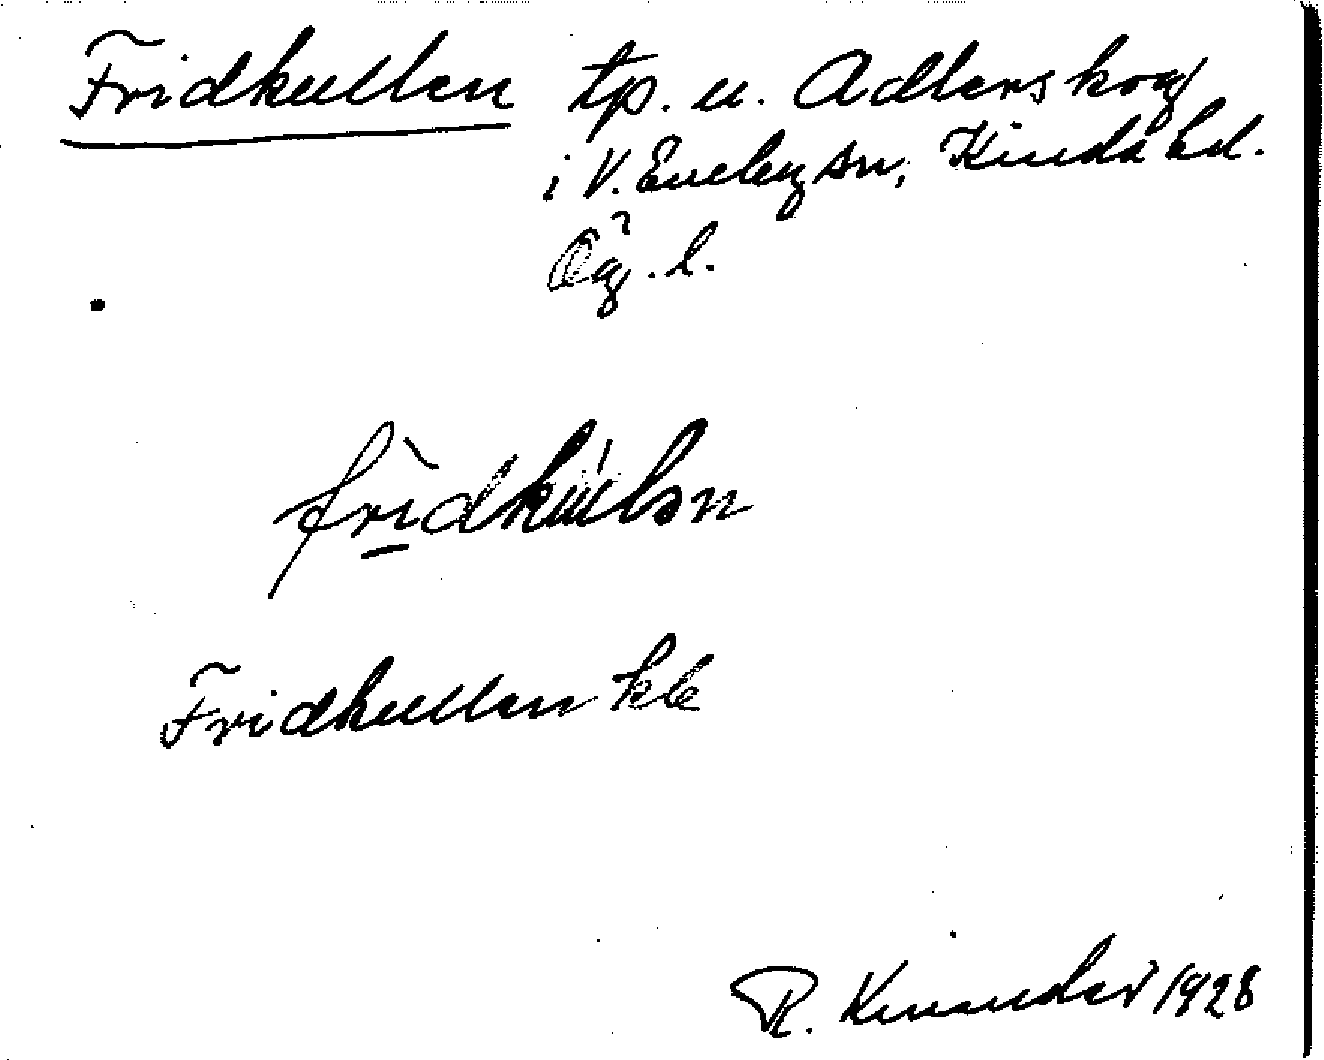 Fridkullen tp. u. Adlerskog
i V. Eneby sn, Kinda hd.
Ög. l.
frìdkúlən
Fridkullen kb
R. Kinander 1928